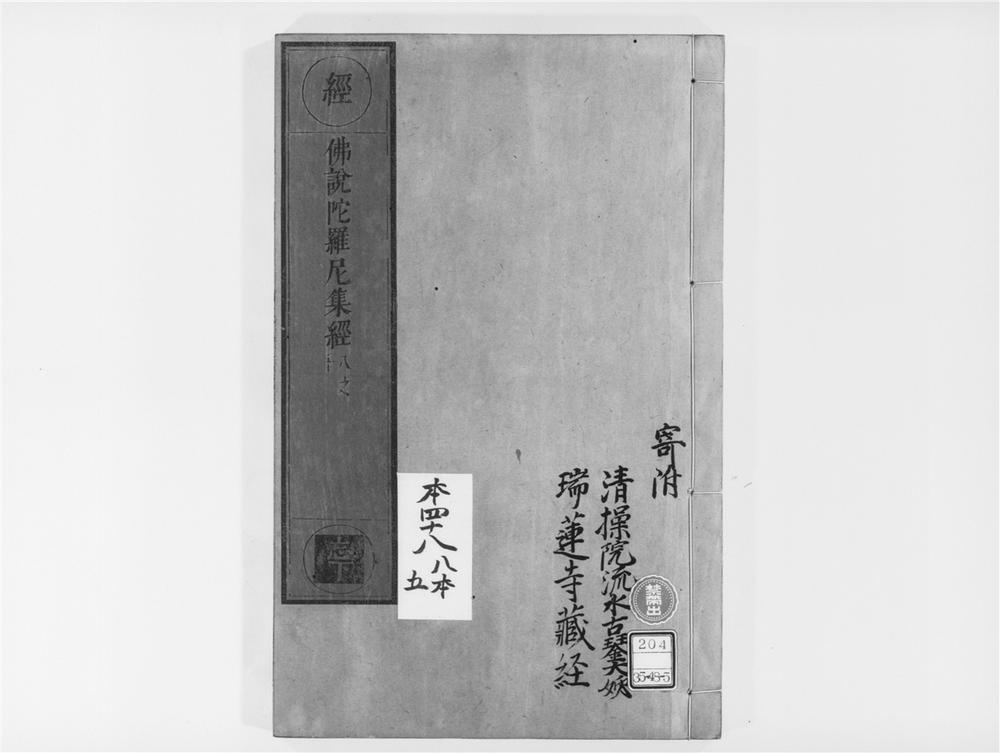 經
佛說陀羅尼集經 八之
志
本四十八 八本
五
寄附
清操院流水古鏧大姉
瑞蓮寺藏経
禁帶出
204
35-48-5